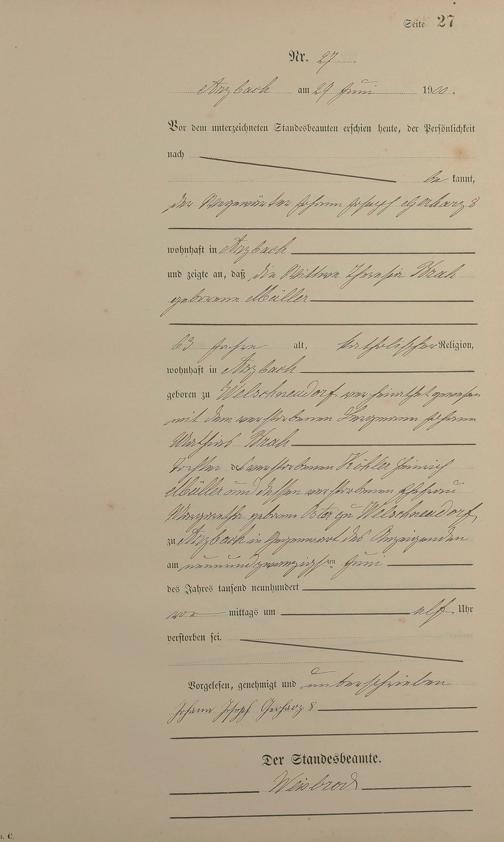 Seite 27
Nr. 27
Arzbach am 29 Juni 1900.
Vor dem unterzeichneten Standesbeamten erschien heute, der Persönlichkeit
nach
be kannt,
der Johann Joseph Gerharz 8
wohnhaft in Arzbach
und zeigte an, daß die Wittwe Theresia Krah
geborene Müller
63 Jahre alt, katholischer Religion,
wohnhaft in Arzbach
geboren zu Welschneudorf, verheirathet gewesen
mit dem verstorbenen Bergmann Johann
Mathias Krah
Tochter des verstorbenen Köhler Heinrich
Müller und dessen verstorbenen Ehefrau
Margaretha geborene zu Welschneudorf,
zu Arzbach in Gegenwart des Anzeigenden
am neunundzwanzigsten Juni
des Jahres tausend neunhundert
vor mittags um elf Uhr
verstorben sei.
Vorgelesen, genehmigt und unterschrieben
Johann Joseph Gerharz 8
Der Standesbeamte.
Weisbrod
. C.